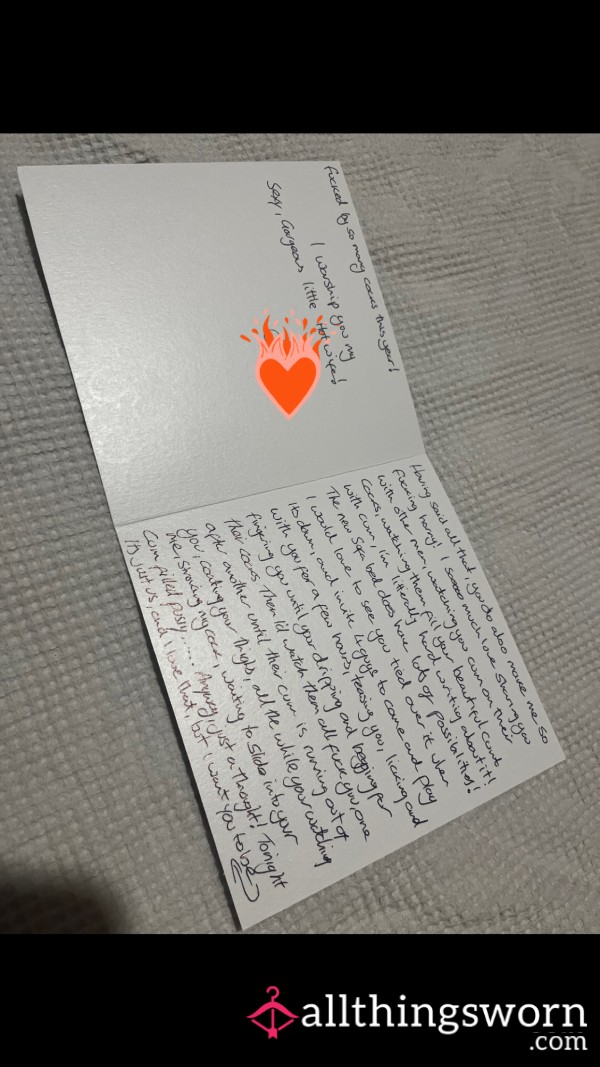 Having said all that, you do also make me so
fucking horny! I soooo much love sharing you
with other men, watching you cum on their
cocks, watching them fill your beautiful cunt
with cum, I'm litterally hard writing about it!
The new bed does have lots of possibilities!
I would love to see you tied over it when
its down, and invite 4 guys to come and play
with you for a few hours, teasing you, licking and
fingering you until your dripping and begging for
their cocks. Then I'd watch them all fuck you, one
after another until their cum is running out of
you, coating your thighs, all the while your watching
me, stroking my cock, waiting to slide into your
cum filled pussy..... Anyway, just a thought! Tonight
its just us, and I love that, but I want you to be
fucked by so many cocks this year!
I worship you my
Sexy, Gorgeous little Hotwife!
allthingsworn
.com